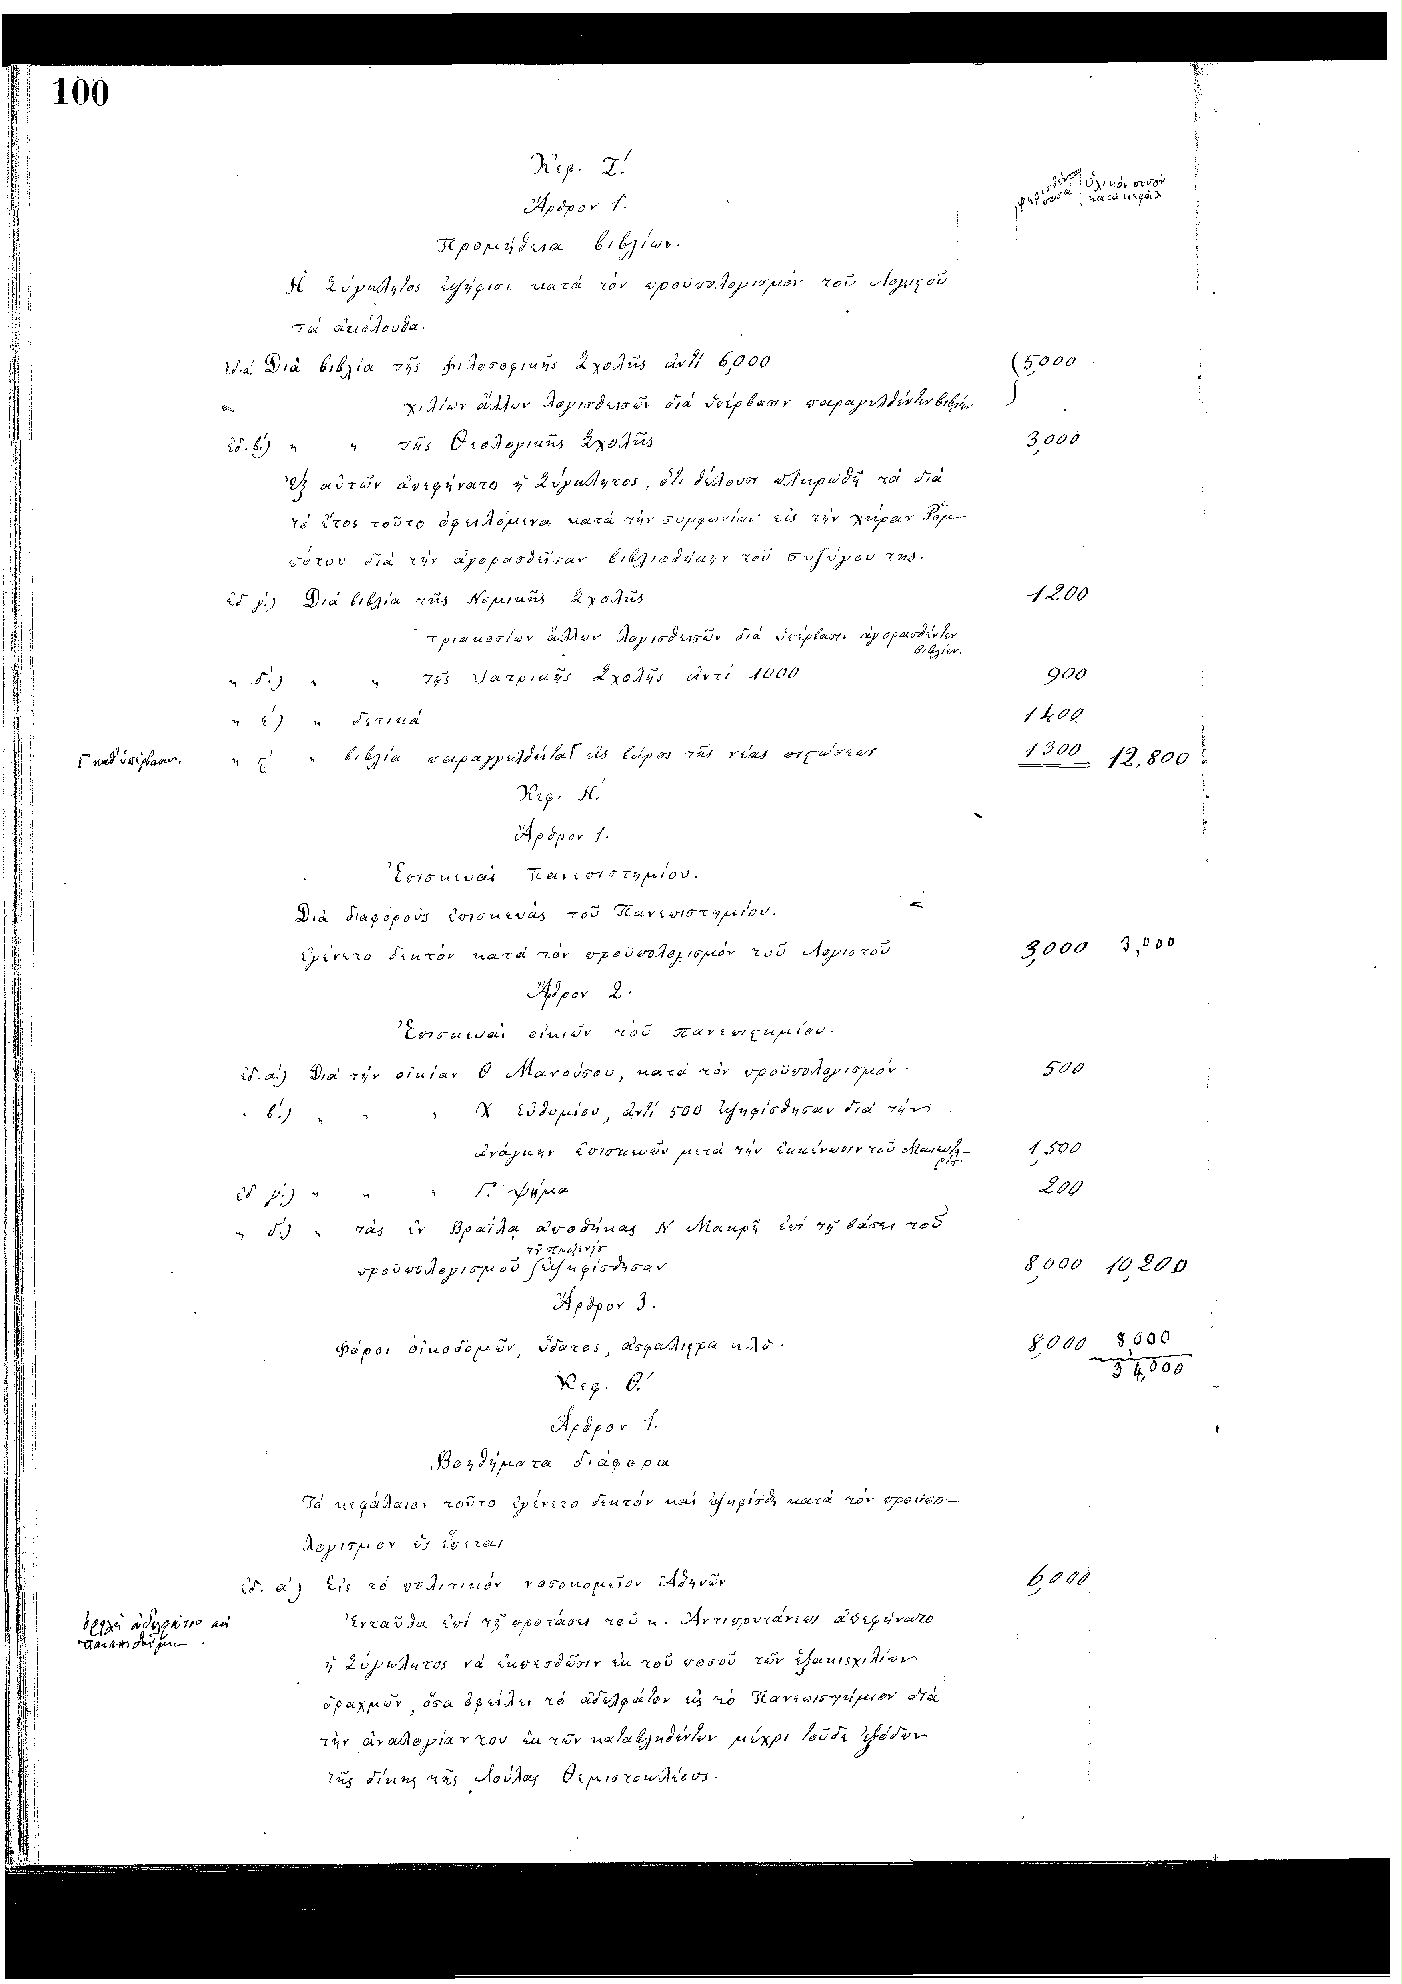 100
Κεφ. Ζ!
Ἄρθρον 1.
ψηφισθέντα ποσά
ὁλικὸν ποσὸν κατὰ κεφάλ.
Προμήθεια βιβλίων.
Ἡ Σύγκλητος ἐψήφισε κατὰ τὸν προϋπολογισμὸν τοῦ Λογιστοῦ
τὰ ἀκόλουθα.
ἐδ. ά Διὰ βιβλία τῆς φιλοσοφικῆς Σχολῆς ἀντὶ 6,000 (5,000
χιλίων ἄλλων λογισθεισῶν διὰ ὑπέρβασιν παραγγελθέντων βιβλίων
ἐδ. β!) " " τῆς Θεολογικῆς Σχολῆς 3,000
Ἐξ αὐτῶν ἀπεφήνατο ἡ Σύγκλητος, ὅτι θέλουσι πληρωθῆ τὰ διὰ
τὸ ἔτος τοῦτο ὀφειλόμενα κατὰ τὴν συμφωνίαν εἰς τὴν χήραν Ῥομ-
πότου διὰ τὴν ἀγορασθεῖσαν βιβλιοθήκην τοῦ συζύγου της.
ἐδ γ!) Διὰ βιβλία τῆς Νομικῆς Σχολῆς 1200
τριακοσίων ἄλλων λογισθεισῶν διὰ ὑπέρβασιν ἀγορασθέντων
βιβλίων.
" δ!) " " τῆς Ἰατρικῆς Σχολῆς ἀντὶ 1000 900
" έ) " δετικά 1400
Γ καθ' ὑπέρβασιν. " ς " βιβλία παραγγελθέντα Γ εἰς βάρος τῆς νέας πιστώσεως 1300 12,800
Κεφ. Η!
Ἄρθρον 1.
Ἐπισκευαὶ Πανεπιστημίου.
Διὰ διαφόρους ἐπισκευὰς τοῦ Πανεπιστημίου.
ἐγένετο δεκτὸν κατὰ τὸν προϋπολογισμὸν τοῦ Λογιστοῦ 3,000 3,000
Ἄρθρον 2.
Ἐπισκευαὶ οἰκιῶν τοῦ πανεπιστημίου.
ἐδ. α!) Διὰ τὴν οἰκίαν Θ Μανούσου, κατὰ τὸν προϋπολογισμόν. 500
" β!) " " " Χ Εὐθυμίου, ἀντὶ 500 ἐψηφίσθησαν διὰ τὴν
ἀνάγκην ἐπισκευῶν μετὰ τὴν ἐκκένωσιν τοῦ 1,500
ἐδ γ!) " " " Γ. Ψύμα 200
" δ!) " τὰς ἐν Βραΐλᾳ ἀποθήκας Ν Μακρῆ ἐπὶ τῇ βάσει τοῦ
προϋπολογισμοῦ ἐψηφίσθησαν 8,000 10,200
Ἄρθρον 3.
Φόροι οἰκοδομῶν, ὕδατος, ἀσφάλιστρα κλπ. 8,000 8,000
34,000
Κεφ. Θ!
Ἄρθρον 1.
Βοηθήματα διάφορα
Τὸ κεφάλαιον τοῦτο ἐγένετο δεκτὸν καὶ ἐψηφίσθη κατὰ τὸν προϋπο-
λογισμὸν ὡς ἕπεται
ἐδ. ά) Εἰς τὸ πολιτικὸν νοσοκομεῖον Ἀθηνῶν 6,000
Ἐνταῦθα ἐπὶ τῇ προτάσει τοῦ κ. Ἀντιπρυτάνεως ἀπεφήνατο
ἡ Σύγκλητος νὰ ἐκπεσθῶσιν ἐκ τοῦ ποσοῦ τῶν ἑξακισχιλίων
δραχμῶν, ὅσα ὀφείλει τὸ ἀδελφάτον εἰς τὸ Πανεπιστήμιον διὰ
τὴν ἀναλογίαν του ἐκ τῶν καταβληθέντων μέχρι τοῦδε ἐξόδων
τῆς δίκης τῆς Λούλας Θεμιστοκλέους.